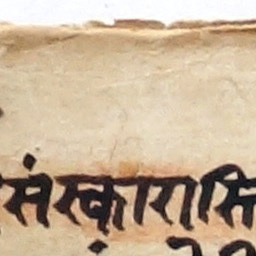 संस्कारासि